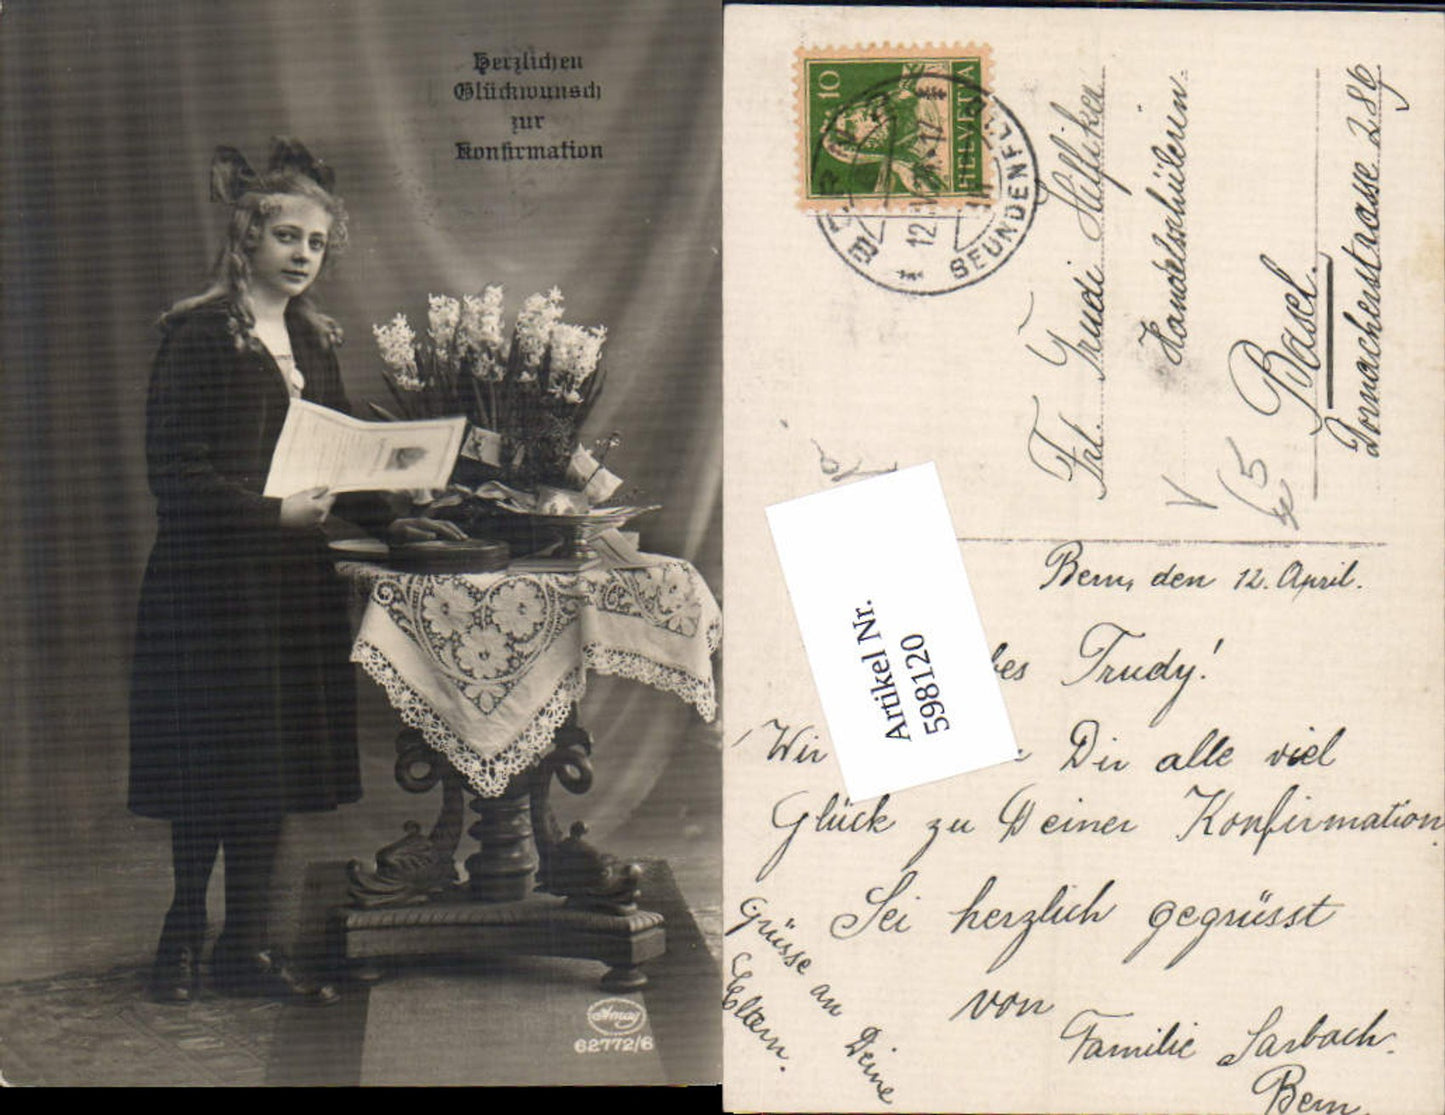 Herzlichen
Glückwunsch
zur
Konfirmation
Amag
62772/6
10
HELVETIA
BERN
12. IV.
SEUNDENFELD
Frl. Trudi Hilfiker
Handelsschülerin
Basel.
Dornacherstrasse 286
V
5
Artikel Nr.
598120
Bern, den 12. April.
bes Trudy!
Wir Dir alle viel
Glück zu Deiner Konfirmation
Sei herzlich gegrüsst
von
Familie Sarbach.
Bern
Grüsse an Deine
Eltern.